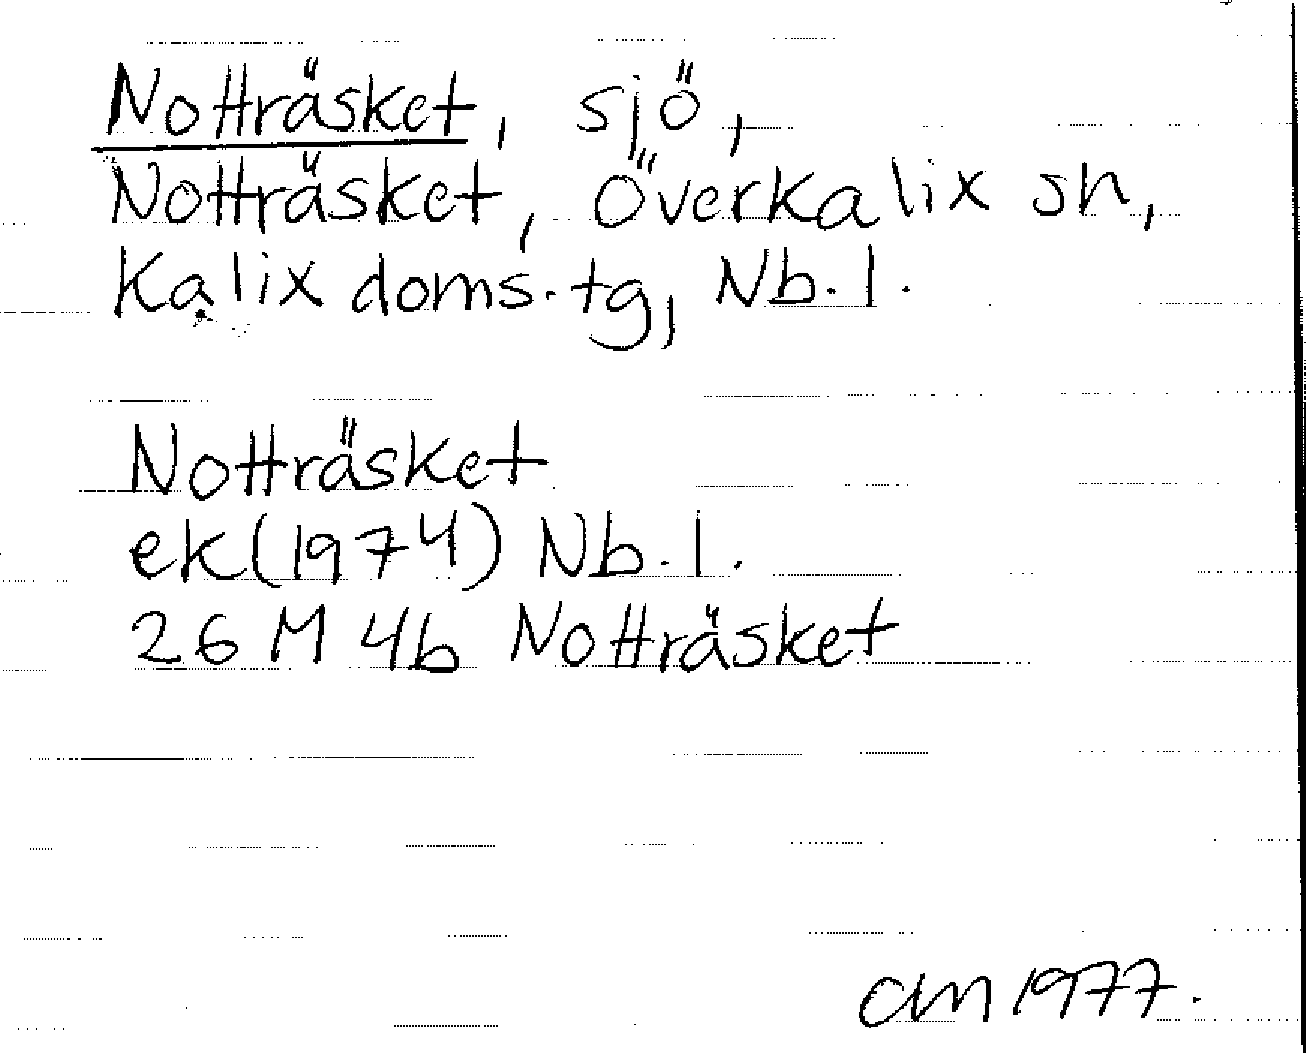 Notträsket, sjö,
Notträsket, Överkalix sn,
Kalix doms.tg, Nb.l.
Notträsket
ek(1974) Nb.l.
26 M 4b Notträsket
am 1977.